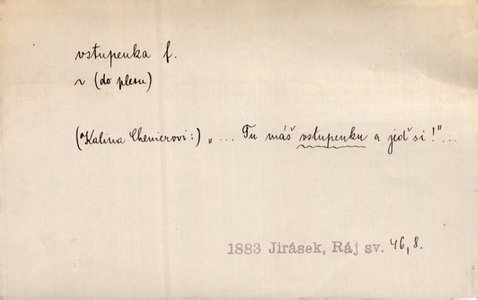 vstupenka f.
~ (do plesu)
(Kalina Chenierovi:) „... Tu máš vstupenku a jeď si!"...
1883 Jirásek, Ráj sv. 46,8.